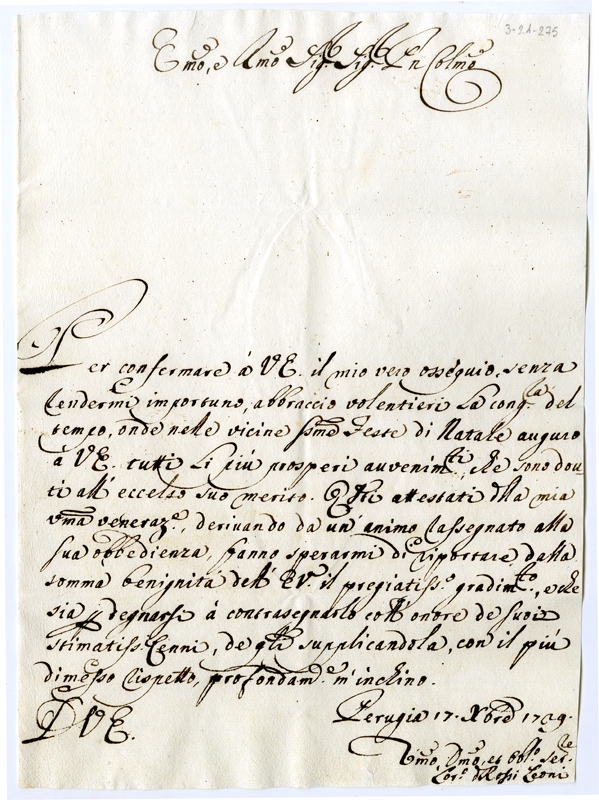 3-2.A-275
Emo, e Rmo Sig.r Sig.r Pn Colmo
Per confermare à VE. il mio vero ossequio, senza
rendermi importuno, abbraccio volentieri la cong.ra del
tempo, onde nelle vicine ssme Feste di Natale auguro
à VE. tutti li più prosperi auvenim.ti, che sono dou-
ti all' eccelso suo merito. Q.sti attestati dlla mia
vma veneraz.e, derivando da un' animo rassegnato alla
sua obbedienza, fanno sperarmi di riportare dalla
somma benignità dell' EV. il pregiatiss.o gradim.to, e che
sia p degnarsi à contrasegnarlo coll' onore de suoi
stimatiss.i Cenni, de q.li supplicandola, con il più
dimesso rispetto, profondam.e m' inchino.
D VE.
Perugia 17. Xbre 1729.
Vmo, Dmo, et obb.o ser.re
dRossi Leoni